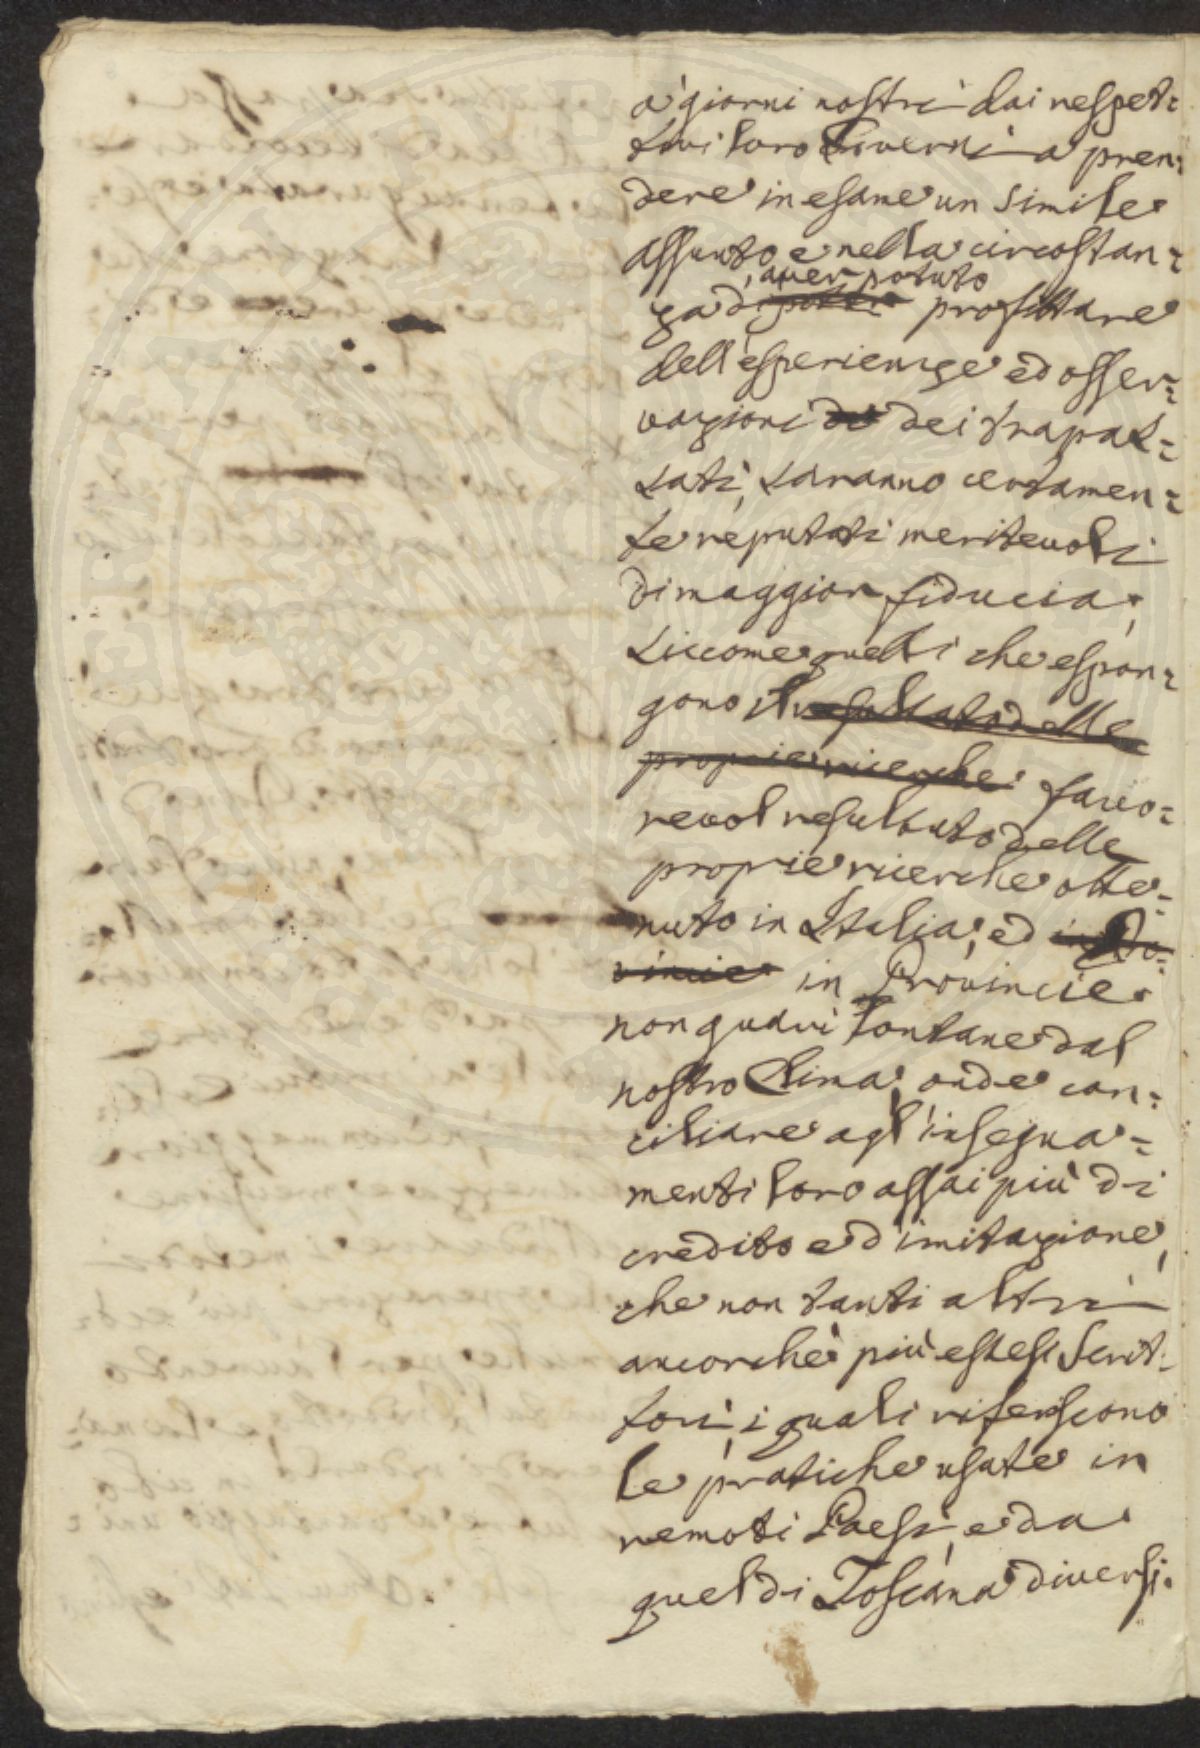 a' giorni nostri dai respet=
tivi loro Governi a pren=
dere in esame un simile
assunto, e nella circostan=
za d', aver potuto profittare
dell'esperienze ed osser=
vazioni de dei trapas=
sati, saranno certamen=
te reputati meritevoli
di maggior fiducia,
siccome quelli che espon=
gono il resultato delle
proprie ricerche favo=
revol resultato delle
proprie ricerche otte=
nuto in Italia, ed in Pro=
vincie in Provincie
non guari lontane dal
nostro Clima, onde con=
ciliare agl'insegna=
menti loro assai più di
credito e d'imitazione,
che non tanti altri
ancorchè più estesi Scrit=
tori, i quali riferiscono
le pratiche usate in
remoti Paesi, e da
quel di Toscana diversi.